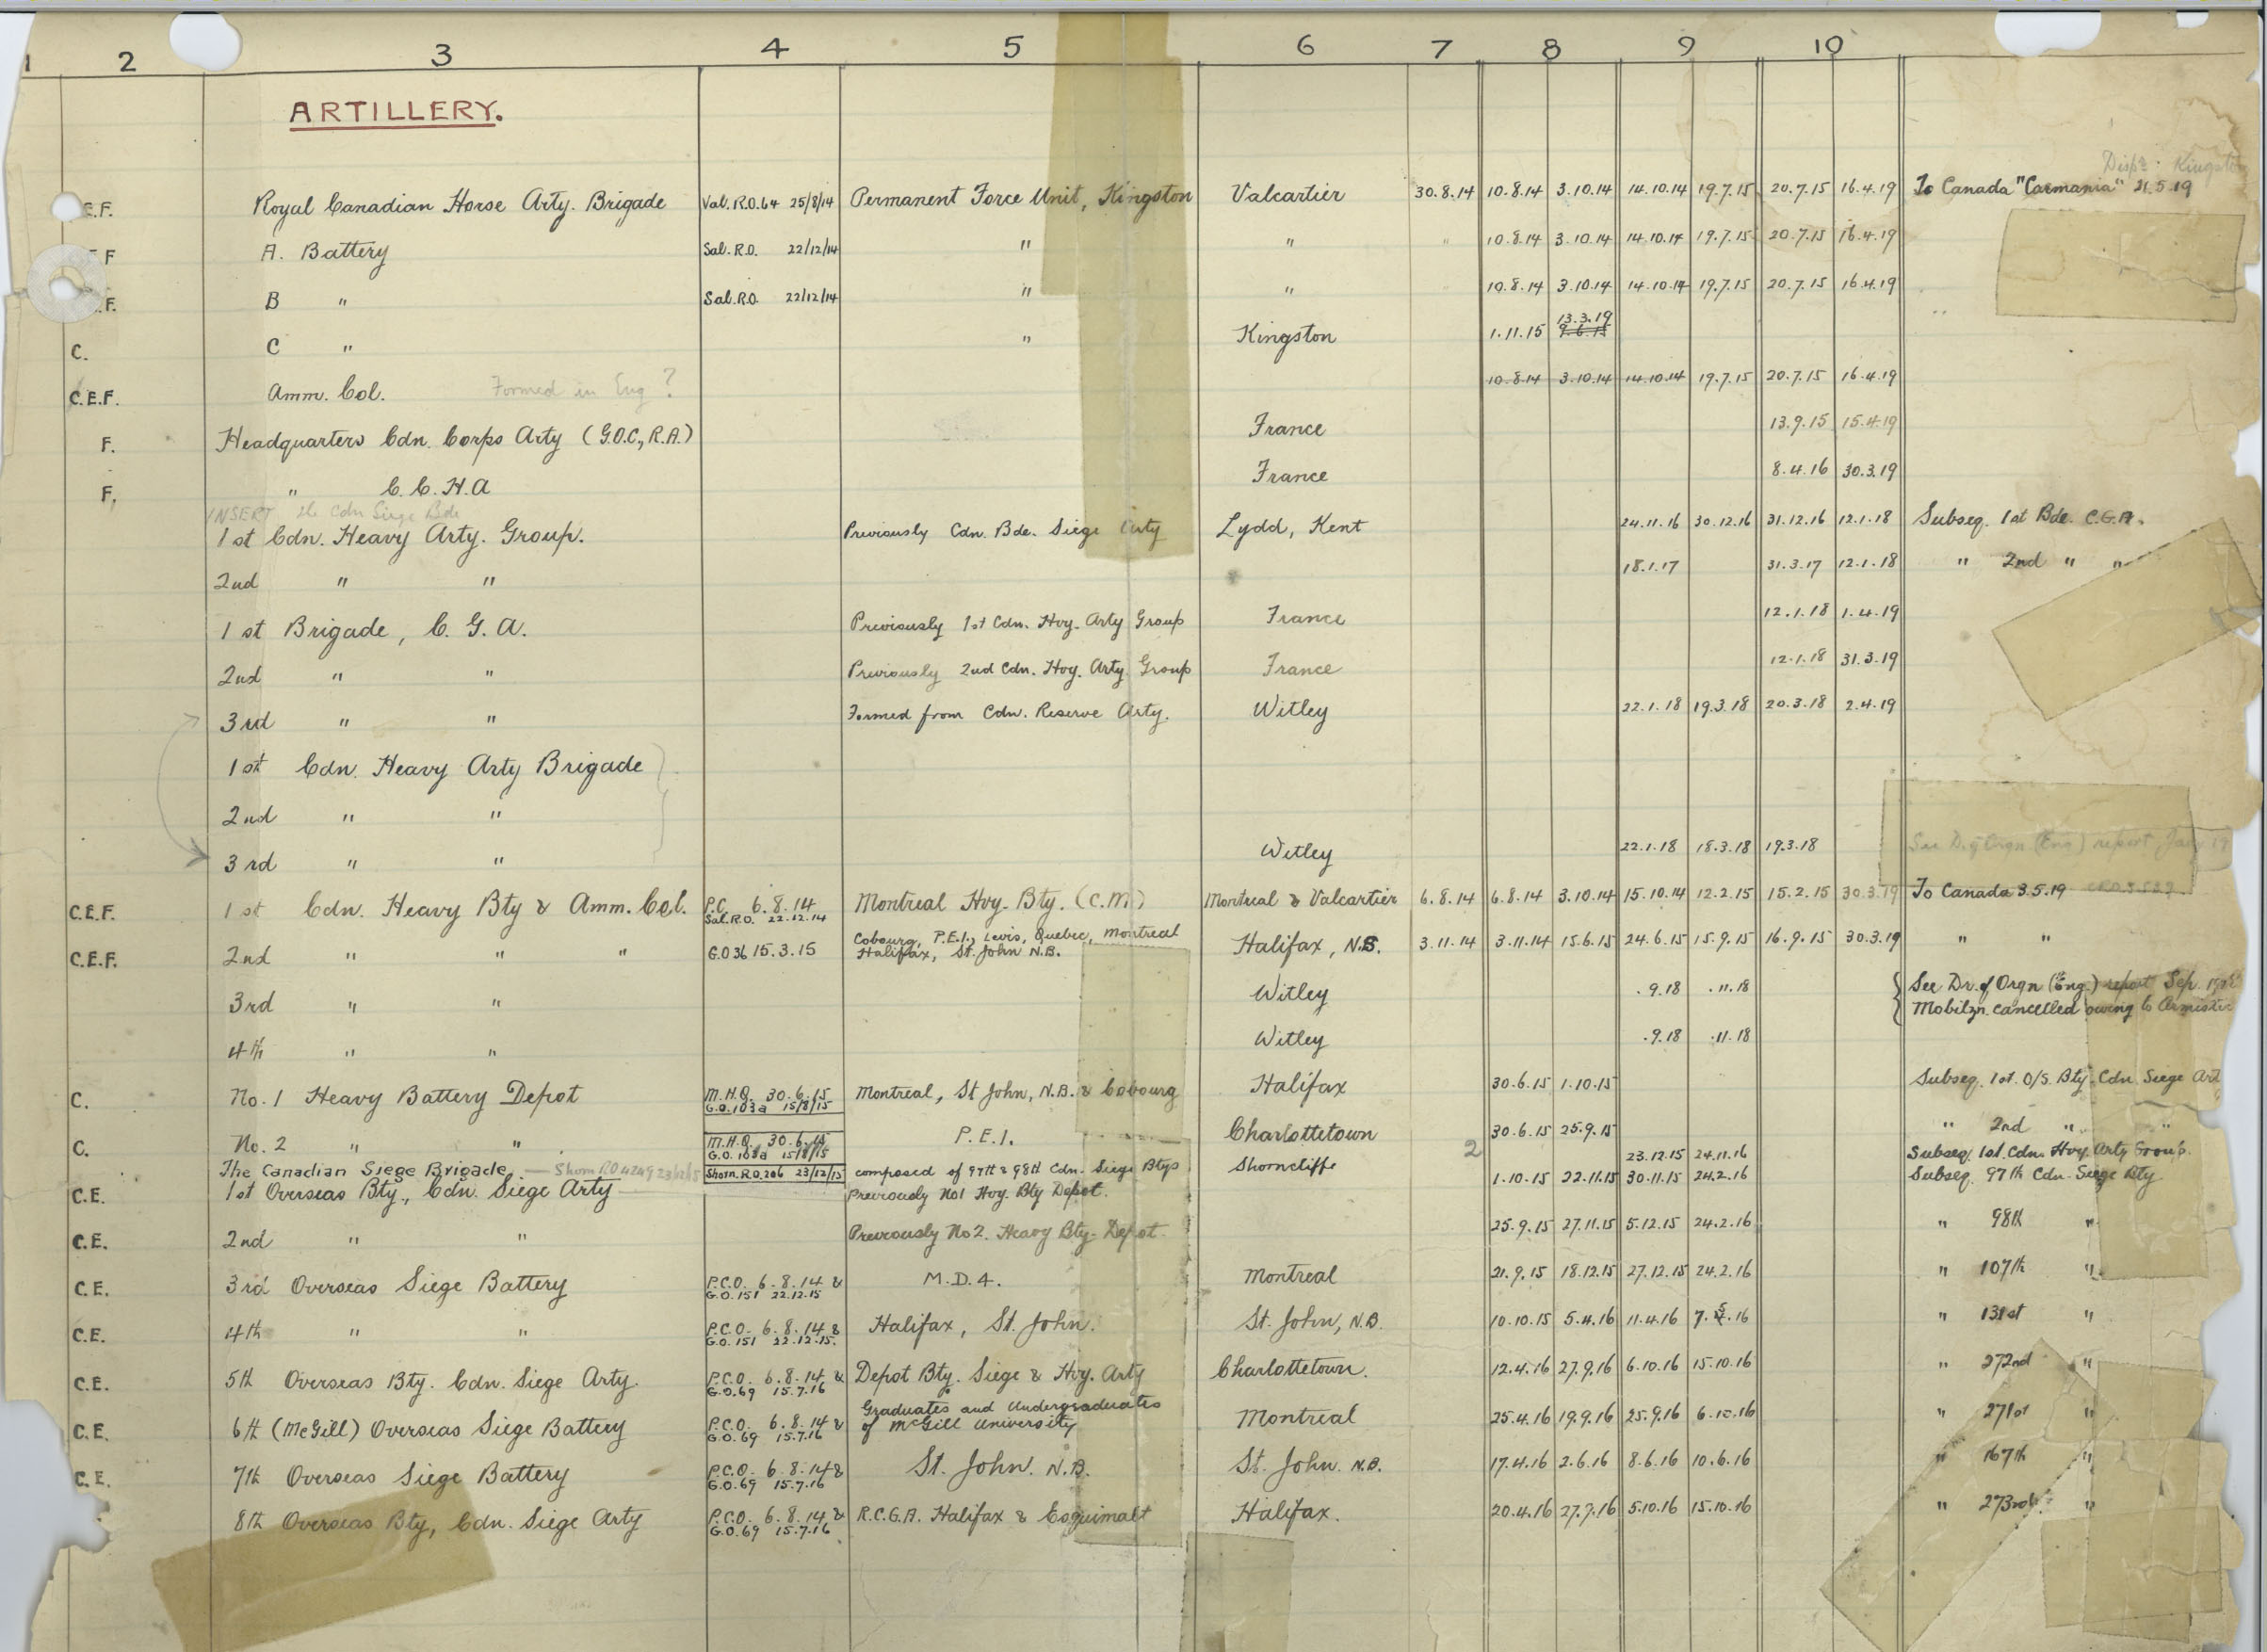 1 2 3 4 5 6 7 8 9 10
ARTILLERY.
Disp. Kingston
C.E.F. Royal Canadian Horse Arty. Brigade Val. R.O.64 25/8/14 Permanent Force Unit, Kingston Valcartier 30.8.14 10.8.14 3.10.14 14.10.14 19.7.15 20.7.15 16.4.19 To Canada "Carmania" 21.5.19
E F A. Battery Sal. R.O. 22/12/14 " " " 10.8.14 3.10.14 14.10.14 19.7.15 20.7.15 16.4.19
F. B " Sal. R.O. 22/12/14 " " 10.8.14 3.10.14 14.10.14 19.7.15 20.7.15 16.4.19
13.3.19
C. C " " Kingston 1.11.15 9.6.15
C.E.F. Amm. Col. Formed in Eng ? 10.8.14 3.10.14 14.10.14 19.7.15 20.7.15 16.4.19
F. Headquarters Cdn. Corps Arty (G.O.C., R.A.) France 13.9.15 15.4.19
F. " C.C.H.A France 8.4.16 30.3.19
INSERT The Cdn Siege Bde
1st Cdn. Heavy Arty. Group. Previously Cdn. Bde. Siege Arty Lydd, Kent 24.11.16 30.12.16 31.12.16 12.1.18 Subseq. 1st Bde. C.G.A.
2nd " " 18.1.17 31.3.17 12.1.18 " 2nd " "
1st Brigade, C.G.A. Previously 1st Cdn. Hvy. Arty Group France 12.1.18 1.4.19
2nd " " Previously 2nd Cdn. Hvy. Arty. Group France 12.1.18 31.3.19
3rd " " Formed from Cdn. Reserve Arty. Witley 22.1.18 19.3.18 20.3.18 2.4.19
1st Cdn. Heavy Arty Brigade
2nd " "
3rd " " Witley 22.1.18 18.3.18 19.3.18 See D. of Orgn (Eng) report Jan 19
C.E.F. 1st Cdn. Heavy Bty & Amm. Col. P.C. 6.8.14 Montreal Hvy. Bty. (C.M.) Montreal & Valcartier 6.8.14 6.8.14 3.10.14 15.10.14 12.2.15 15.2.15 30.3.19 To Canada 3.5.19
Sal. R.O. 22.12.14
Cobourg, P.E.I., Levis, Quebec, Montreal
C.E.F. 2nd " " " G.O 36 15.3.15 Halifax, St. John N.B. Halifax, N.S. 3.11.14 3.11.14 15.6.15 24.6.15 15.9.15 16.9.15 30.3.19 " "
3rd " " Witley .9.18 .11.18 See Dr. of Orgn (Eng.) report Sep. 1918
Mobilzn. cancelled owing to Armistic
4th " " Witley .9.18 .11.18
C. No. 1 Heavy Battery Depot M.H.Q. 30.6.15 Montreal, St John, N.B. & Cobourg Halifax 30.6.15 1.10.15 Subseq. 1st. O/S. Bty. Cdn. Siege Art
G.O.103a 15/8/15
C. No. 2 " " M.H.Q. 30.6.15 P.E.I. Charlottetown 30.6.15 25.9.15 " 2nd " "
G.O.103a 15/8/15 2
The Canadian Siege Brigade — Shorn RO 4249 23/12/15 Shorn. R.O. 206 23/12/15 composed of 97th & 98th Cdn. Siege Btys Shorncliffe 23.12.15 24.11.16 Subseq. 1st. Cdn. Hvy. Arty Group.
C.E. 1st Overseas Bty., Cdn. Siege Arty Previously No1 Hvy. Bty Depot. 1.10.15 22.11.15 30.11.15 24.2.16 Subseq. 97th Cdn. Siege Bty
C.E. 2nd " " Previously No 2. Heavy Bty. Depot. 25.9.15 27.11.15 5.12.15 24.2.16 " 98th "
C.E. 3rd Overseas Siege Battery P.C.O. 6.8.14 & M.D.4. Montreal 21.9.15 18.12.15 27.12.15 24.2.16 " 107th "
G.O.151 22.12.15
C.E. 4th " " P.C.O. 6.8.14 & Halifax, St. John. St. John, N.B. 10.10.15 5.4.16 11.4.16 7.5.16 " 131st "
G.O.151 22.12.15.
C.E. 5th Overseas Bty. Cdn. Siege Arty. P.C.O. 6.8.14 & Depot Bty. Siege & Hvy. Arty Charlottetown. 12.4.16 27.9.16 6.10.16 15.10.16 " 272nd "
G.O.69 15.7.16
Graduates and Undergraduates
C.E. 6th (McGill) Overseas Siege Battery P.C.O. 6.8.14 & of McGill University Montreal 25.4.16 19.9.16 25.9.16 6.10.16 " 271st "
G.O.69 15.7.16
C.E. 7th Overseas Siege Battery P.C.O. 6.8.14 & St. John. N.B. St. John. N.B. 17.4.16 2.6.16 8.6.16 10.6.16 " 167th "
G.O.69 15.7.16
8th Overseas Bty, Cdn. Siege Arty P.C.O. 6.8.14 & R.C.G.A. Halifax & Esquimalt Halifax. 20.4.16 27.9.16 5.10.16 15.10.16 " 273rd "
G.O.69 15.7.16